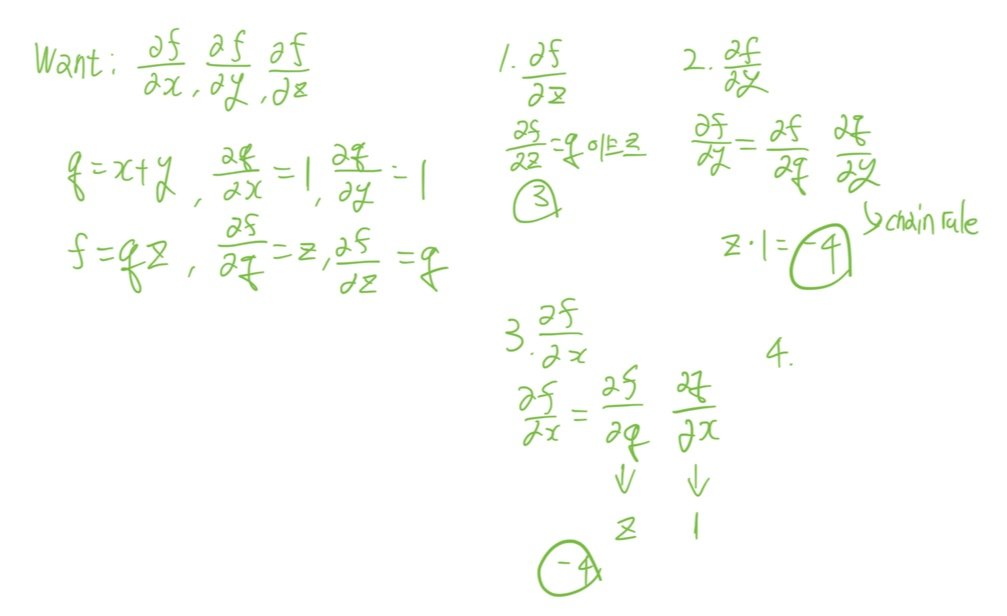 Want: ∂f/∂x, ∂f/∂y, ∂f/∂z
q=x+y, ∂q/∂x=1, ∂q/∂y=1
f=qz, ∂f/∂q=z, ∂f/∂z=q
1. ∂f/∂z
∂f/∂z=q 이므로
3
2. ∂f/∂y
∂f/∂y = ∂f/∂q ∂q/∂y
↘chain rule
z·1=-4
3. ∂f/∂x
∂f/∂x = ∂f/∂q ∂q/∂x
↓ ↓
z 1
-4
4.